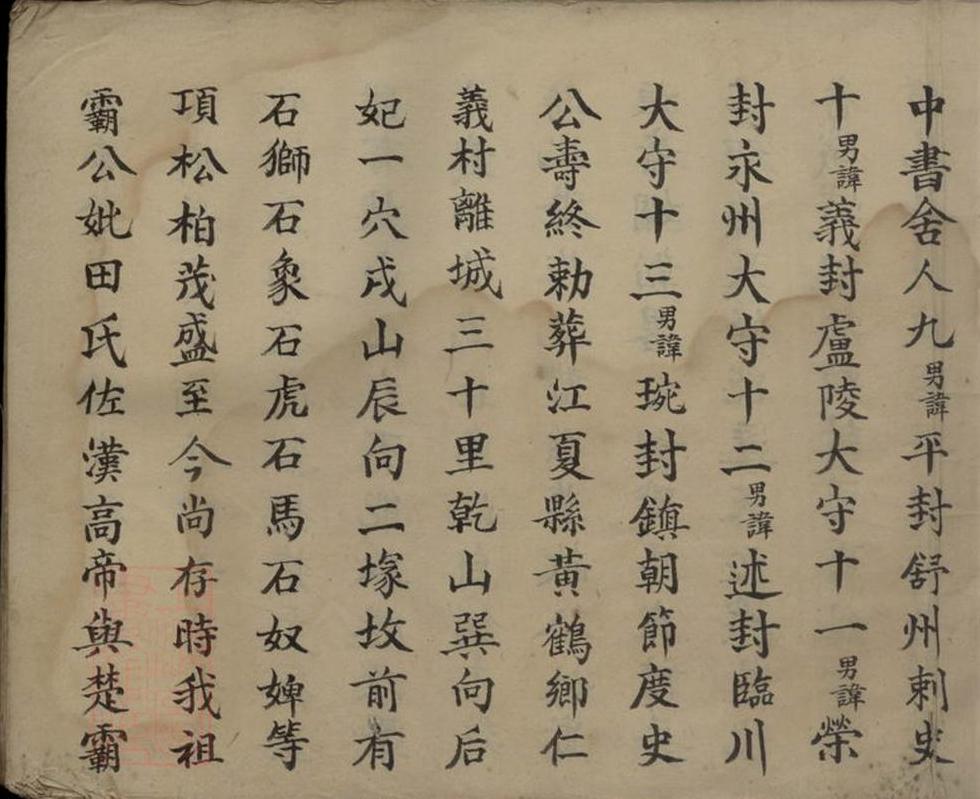 中書舍人九男諱平封舒州刺史
十男諱義封盧陵大守十一男諱榮
封永州大守十二男諱述封臨川
大守十三男諱琬封鎮朝節度史
公壽終勅葬江夏縣黃鶴鄉仁
義村離城三十里乾山巽向后
妃一穴戌山辰向二塜坟前有
石獅石象石虎石馬石奴婢等
項松柏茂盛至今尚存時我祖
霸公妣田氏佐漢高帝與楚霸